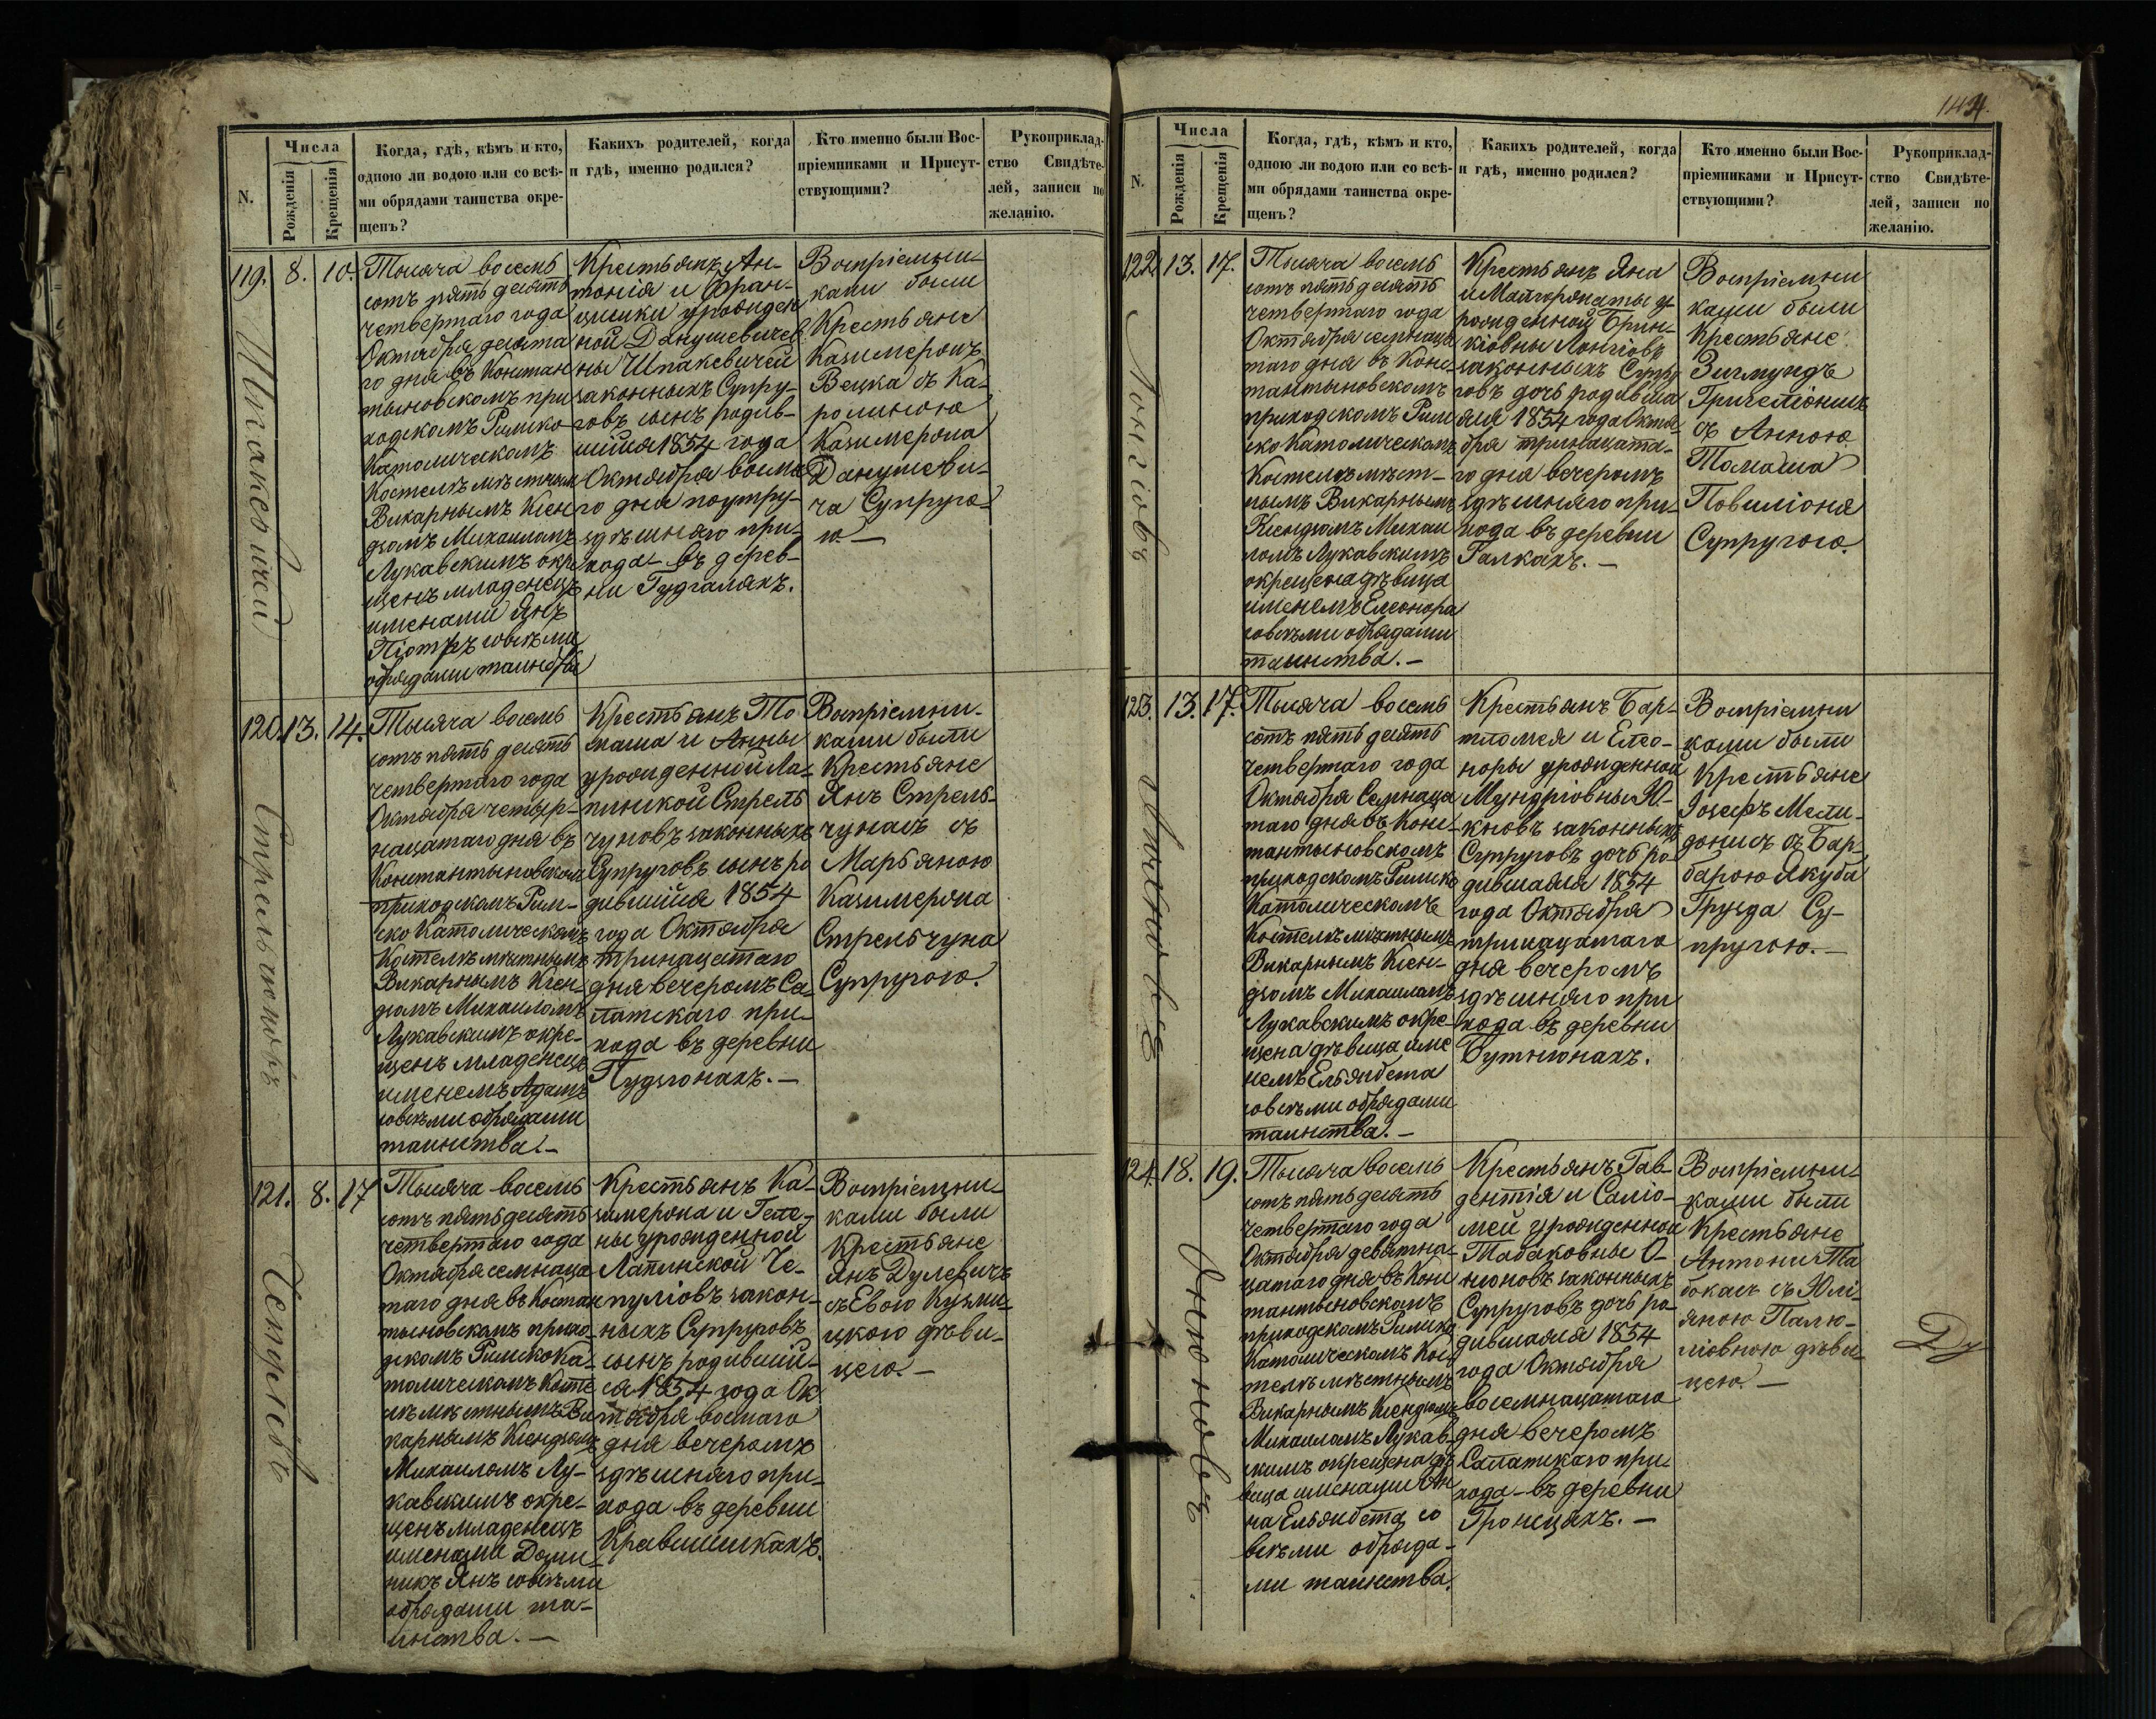 N.
Числа
Рожденія
Крещенія
Когда, гдѣ, кѣмъ и кто,
одною ли водою или со всѣ-
ми обрядами таинства окре-
щенъ?
Какихъ родителей, когда
и гдѣ, именно родился?
Кто именно были Вос-
пріемниками и Присут-
ствующими?
Рукоприклад-
ство Свидѣте-
лей, записи по
желанію.
119. 8. 10.
Шпакевичей
Тысяча восемь
сотъ пять десятъ
четвертаго года
Октября десята
го дня въ Констан
тыновскомъ при
ходскомъ Римско
Католическомъ
Костелѣ мѣстнымъ
Викарнымъ Ксен
дзомъ Михаиломъ
Лукавскимъ окре
щенъ младенецъ
именами Янъ
Піотръ совсѣми
обрядами таинства
Крестьянъ Ан-
тонія и Фран-
цишки урожден
ной Данушевичев
ны Шпакевичей
законныхъ Супру-
говъ сынъ родив-
шійся 1854 года
Октября восма
го дня поутру-
здѣшняго при-
хода - въ дерев-
ни Гудгаляхъ.
Воспріемни-
ками были
Крестьяне
Казимеронъ
Вецка съ Ка-
ролиною
Казимерона
Данушеви-
ча Супруго-
ю. —
120. 13. 14.
Стрельчуновъ
Тысяча восемь
сотъ пять десятъ
четвертаго года
Октября четыр-
нацатаго дня въ
Константыновском
приходскомъ Рим-
ско Католическомъ
Костелѣ мѣстнымъ
Викарнымъ Ксен-
дзомъ Михаиломъ
Лукавскимъ окре-
щенъ младенецъ
именемъ Адамъ
совсѣми обрядами
таинства. -
Крестьянъ То
маша и Анны
урожденной Ла-
пинской Стрель
чуновъ законныхъ
Супруговъ сынъ ро
дившійся 1854
года Октября
тринацатаго
дня вечеромъ Са-
латскаго при-
хода въ деревни
Пудзгонахъ. —
Воспріемни-
ками были
Крестьяне
Янъ Стрель-
чунасъ съ
Марьяною
Казимерона
Стрельчуна
Супругою.
121. 8. 17
Чепуліовъ
Тысяча восемь
сотъ пять десятъ
четвертаго года
Октября семнаца
таго дня въ Костан
тыновскомъ прихо-
дскомъ Римско Ка-
толическомъ Косте
лѣ мѣстнымъ Ви
карнымъ Ксендзомъ
Михаиломъ Лу-
кавскимъ окре-
щенъ младенецъ
именами Доми-
никъ Янъ совсѣми
обрядами та-
инства. —
Крестьянъ Ка-
зимерона и Геле-
ны урожденной
Лапинской Че-
пуліовъ закон-
ныхъ Супруговъ
сынъ родившій-
ся 1854 года Ок
тября восмаго
дня вечеромъ
здѣшняго при-
хода въ деревни
Кравшишкахъ.
Воспріемни-
ками были
Крестьяне
Янъ Дулевичъ
съ Евою Кузми-
цкою дѣви-
цею. —
144.
N.
Числа
Рожденія
Крещенія
Когда, гдѣ, кѣмъ и кто,
одною ли водою или со всѣ-
ми обрядами таинства окре-
щенъ?
Какихъ родителей, когда
и гдѣ, именно родился?
Кто именно были Вос-
пріемниками и Присут-
ствующими?
Рукоприклад-
ство Свидѣте-
лей, записи по
желанію.
122. 13. 17.
Лонгіовъ
Тысяча восемь
сотъ пять десятъ
четвертаго года
Октября семнаца
таго дня въ Конс-
тантыновскомъ
приходскомъ Рим
ско Католическомъ
Костелѣ мѣст-
нымъ Викарнымъ
Ксендзомъ Михаи
ломъ Лукавскимъ
окрещена дѣвица
именемъ Елеонора
совсѣми обрядами
таинства. —
Крестьянъ Яна
и Малгоржаты у
рожденной Брин-
кіовны Лонгіовъ
законныхъ Супру
говъ дочь родивша
яся 1854 года Октя-
бря тринацата-
го дня вечеромъ
здѣшняго при-
хода въ деревни
Галкахъ. —
Воспріемни
ками были
Крестьяне
Зигмундъ
съ Анною
Томаша
Повиліоня
Супругою.
123. 13. 17.
Тысяча восемь
сотъ пять десятъ
четвертаго года
Октября Семнаца
таго дня въ Конс-
тантыновскомъ
приходскомъ Римско
Католическомъ
Костелѣ мѣстнымъ
Викарнымъ Ксен-
дзомъ Михаиломъ
Лукавскимъ окре-
щена дѣвица име
немъ Ельжбета
совсѣми обрядами
таинства. —
Крестьянъ Бар-
тломея и Елео-
норы урожденной
Супруговъ дочь ро-
дившаяся 1854
года Октября
тринацатаго
дня вечеромъ
здѣшняго при
хода въ деревни
Бутнюнахъ.
Воспріемни
ками были
Крестьяне
Іозефъ Мели-
донисъ съ Бар-
барою Якуба
Грузда Су-
пругою. —
124. 18. 19.
Анюновъ
Тысяча восемь
сотъ пять десятъ
четвертаго года
Октября девятна-
цатаго дня въ Конс
тантыновскомъ
приходскомъ Римско
Католическомъ Кос
телѣ мѣстнымъ
Викарнымъ Ксендзомъ
Михаиломъ Лукав-
скимъ окрещена дѣ
вица именами Ан
на Ельжбета со
всѣми обряда-
ми таинства.
Крестьянъ Гав-
дентія и Саліо-
меи урожденной
Табаковны О-
нюновъ законныхъ
Супруговъ дочь ро-
дившаяся 1854
года Октября
восемнацатаго
дня вечеромъ
Салатскаго при
хода - въ деревни
Гронцяхъ. —
Воспріемни-
ками были
Крестьяне
Антони Та
бокасъ съ Юлі-
яною Палю-
ліовною дѣви-
цею. —
Ду